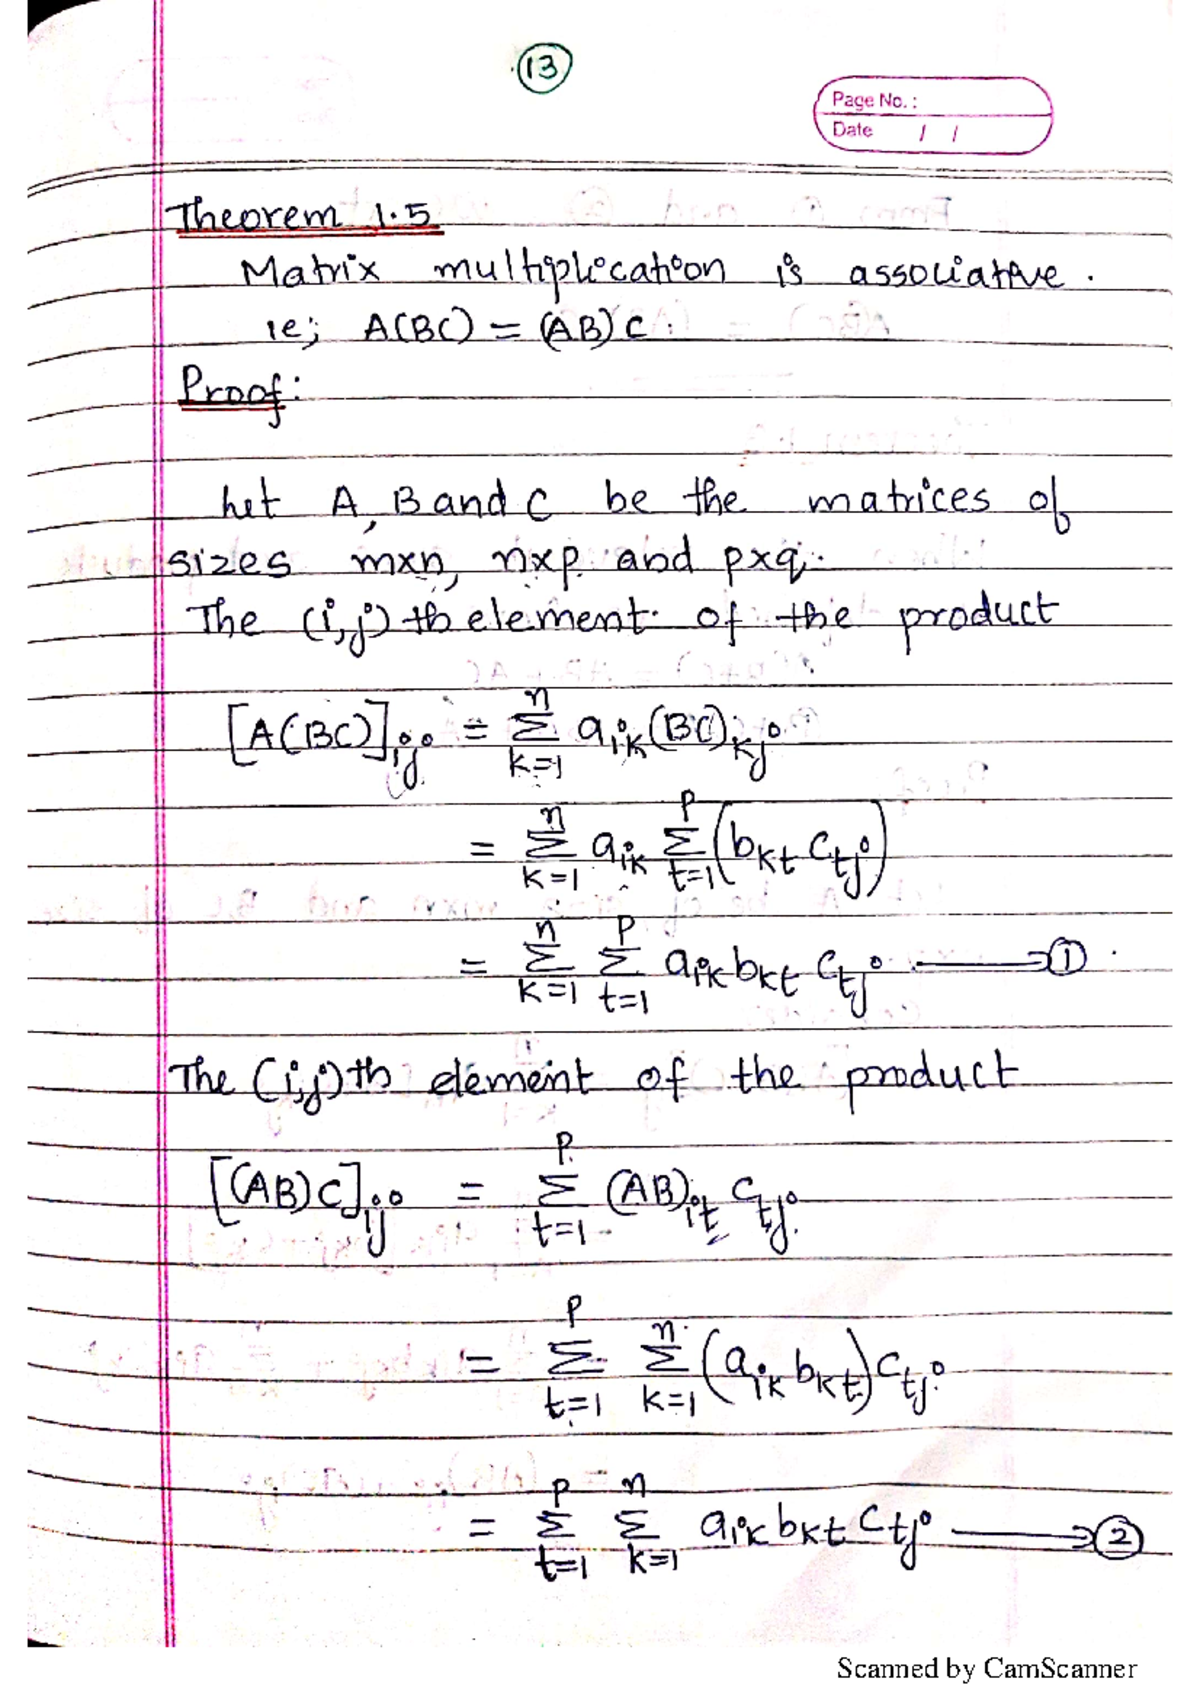 13
Page No. :
Date / /
Theorem 1.5
Matrix multiplication is associative.
ie; A(BC) = (AB)C.
Proof:
Let A, B and C be the matrices of
sizes mxn, nxp and pxq.
The (i,j)th element of the product
[A(BC)]ij = n Σ k=1 aik (BC)kj
= n Σ k=1 aik p Σ t=1 (bkt ctj)
= n Σ k=1 p Σ t=1 aik bkt ctj → ①
The (i,j)th element of the product
[(AB)C]ij = p Σ t=1 (AB)it ctj
= p Σ t=1 n Σ k=1 (aik bkt) ctj
= p Σ t=1 n Σ k=1 aik bkt ctj → ②
Scanned by CamScanner